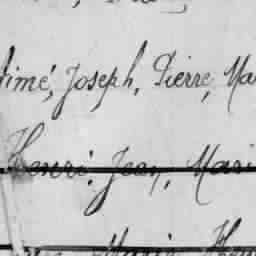 Aimé, Joseph, Pierre, Ma
Henri, Jean, Mari
Marie